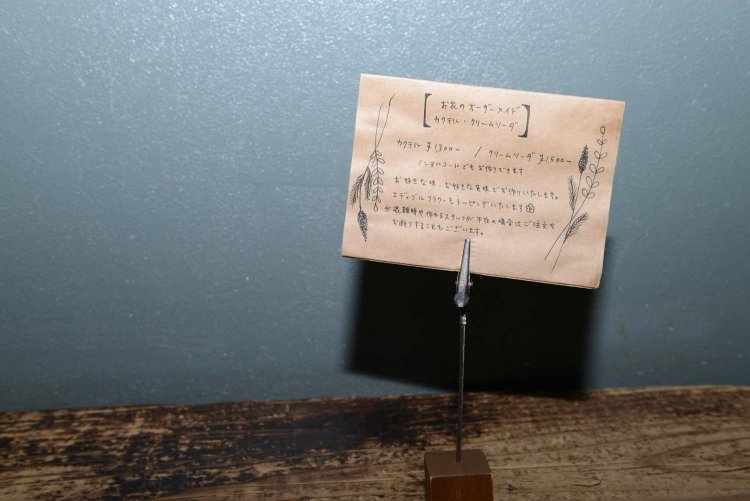 お花のオーダーメイド
カクテル・クリームソーダ
カクテル ¥1300ー / クリームソーダ ¥1500ー
ノンアルコールでもお作りできます
お好きな味、お好きな気味でお作りいたします。
エディブルフラワーもトッピングいたします
※混雑時や作れるスタッフが不在の場合はご注文を
お断りすることもございます。